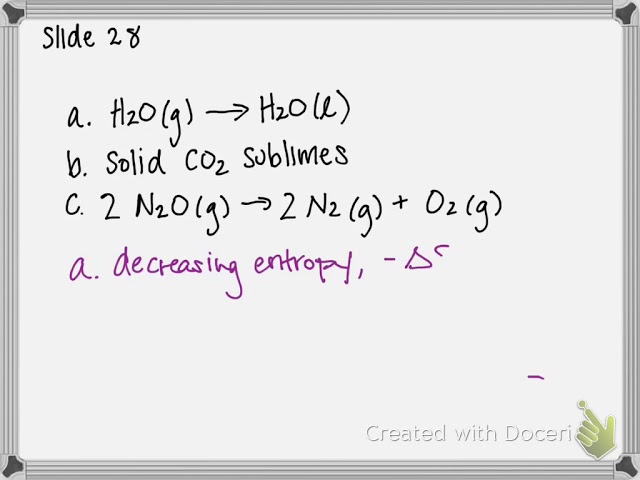 Slide 28
a. H2O(g) → H2O(l)
b. Solid CO2 sublimes
c. 2 N2O(g) → 2 N2(g) + O2(g)
a. decreasing entropy, - ΔS
-
Created with Doceri